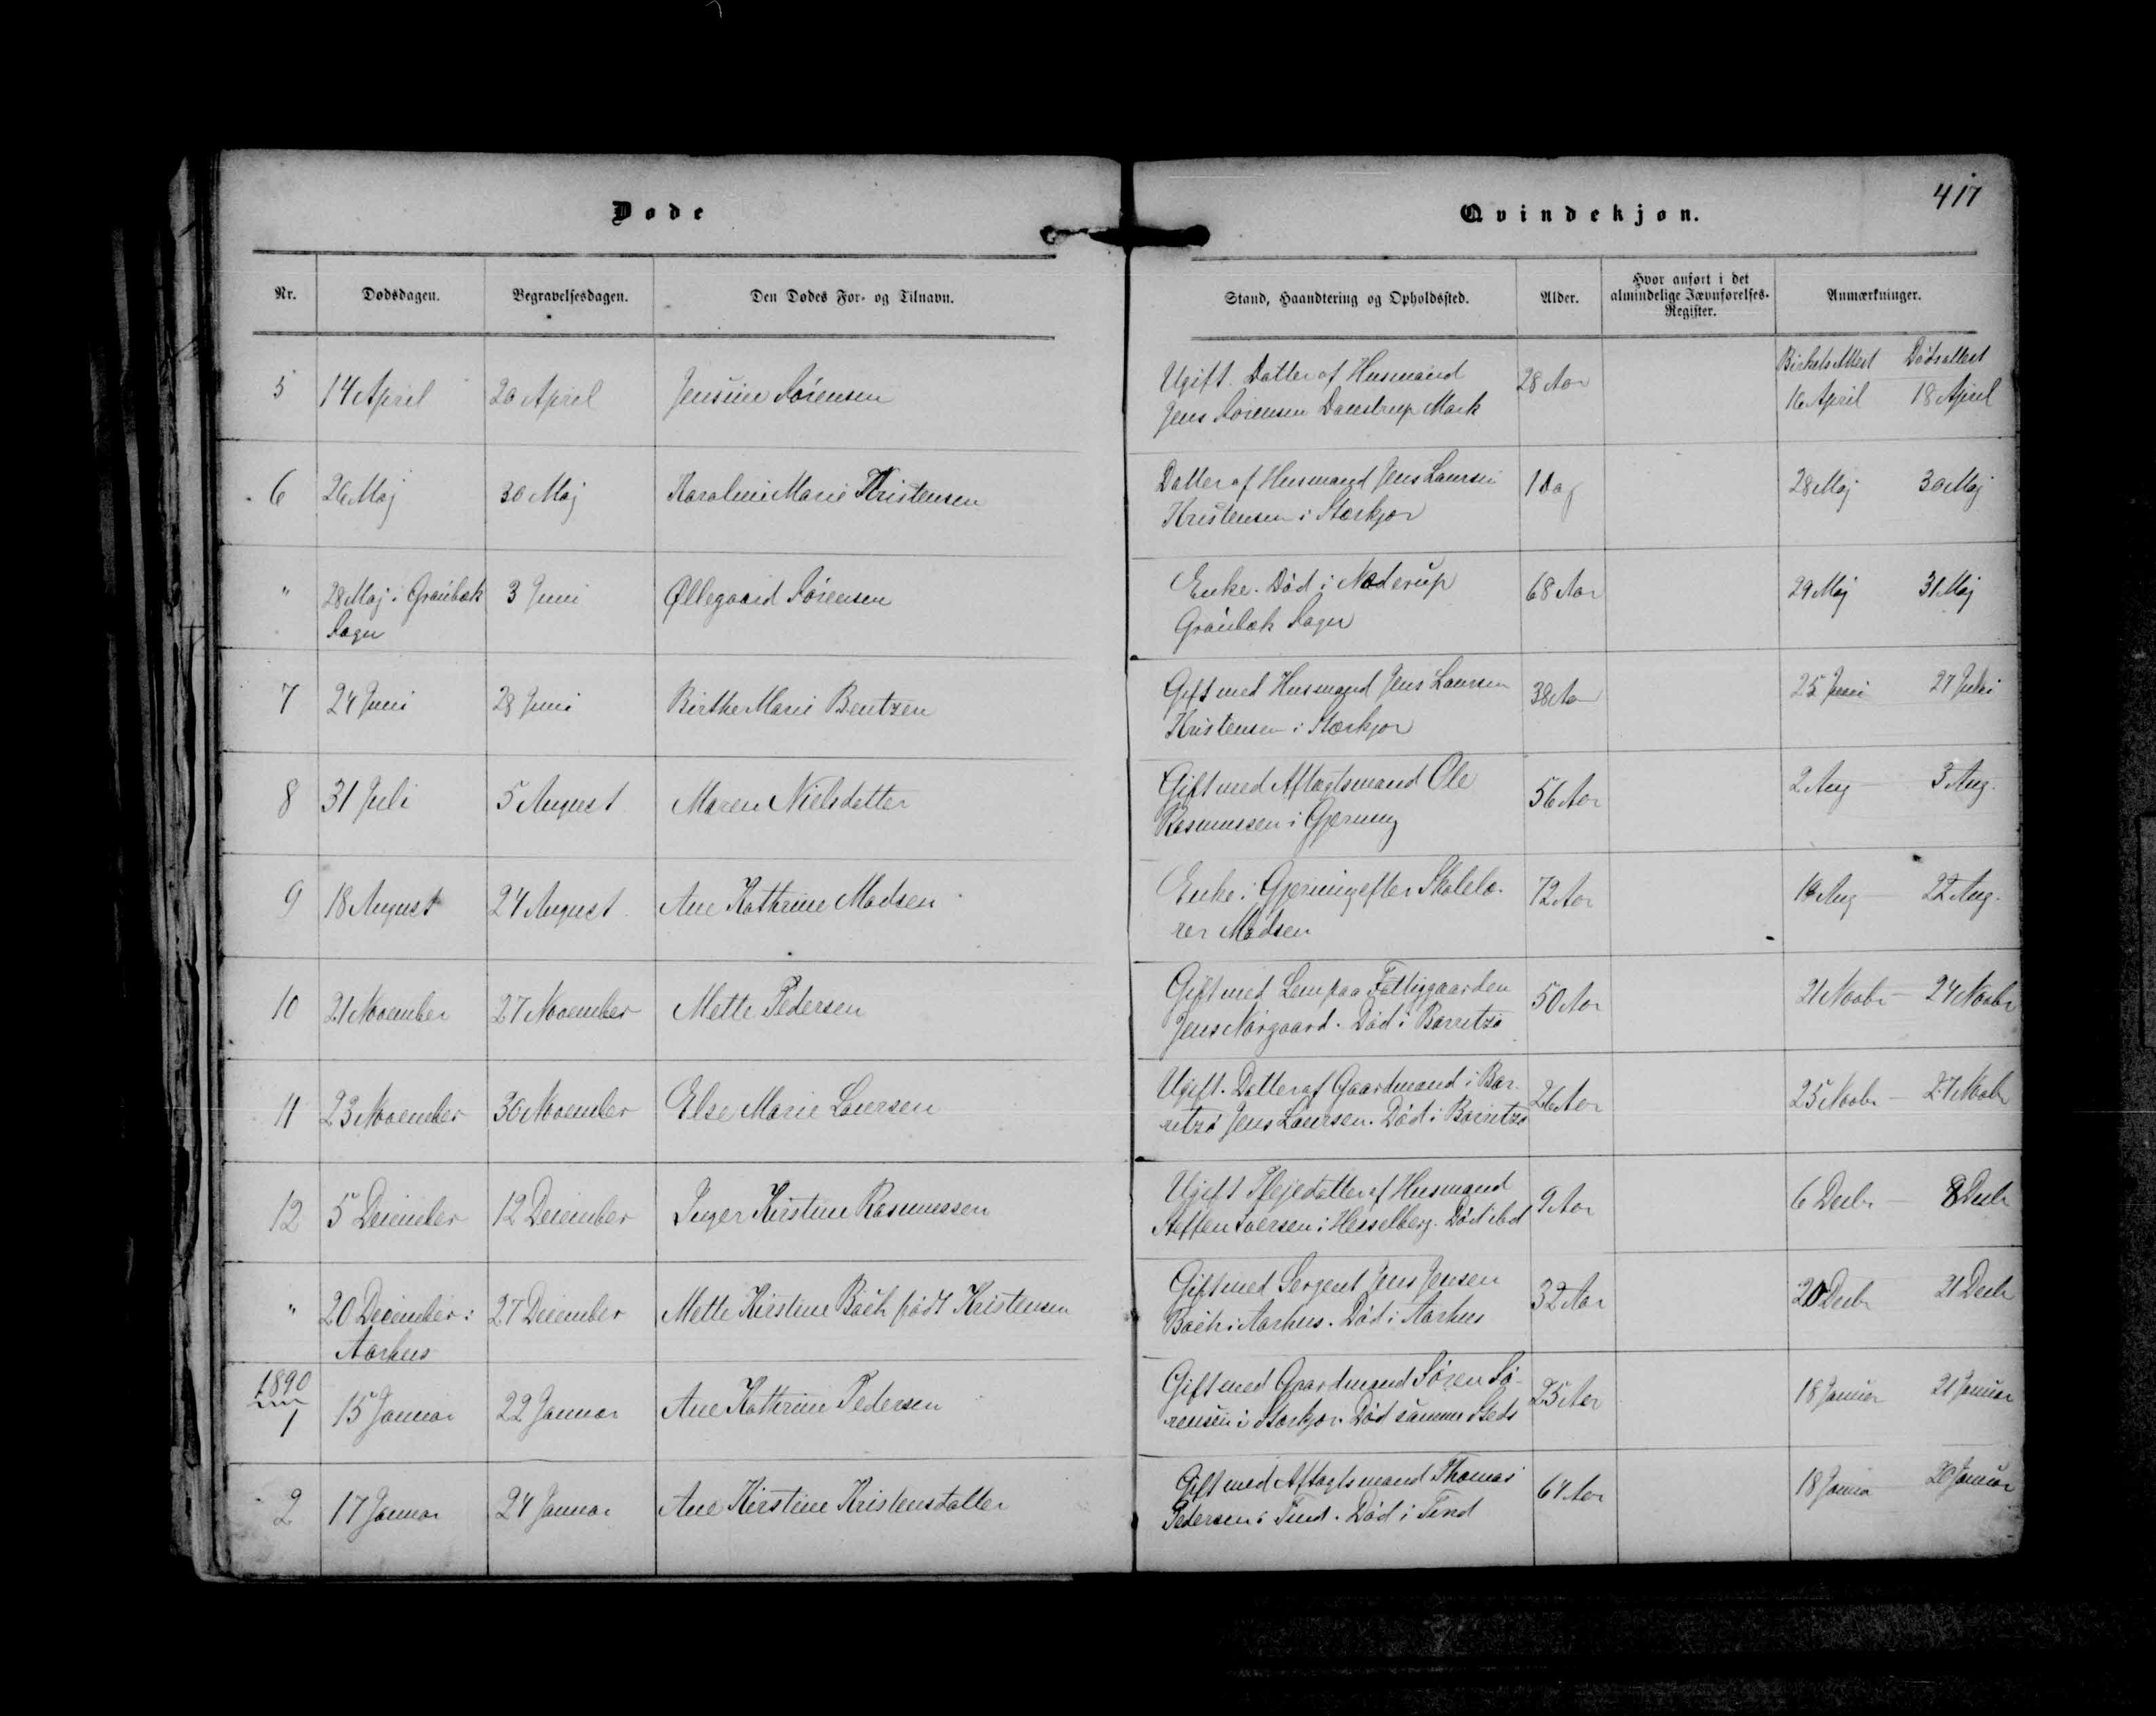 417
Døde
Qvindekjøn.
Nr. Dødsdagen. Begravelsesdagen. Den Dødes For- og Tilnavn. Stand, Haandtering og Opholdssted. Alder. Hvor anført i det almindelige Jævnførelses-Register. Anmærkninger.
5 14 April 20 April Jensine Sørensen Ugift. Datter af Husmand 28 Aar Dødsattest
Jens Sørensen Mark 16 April 18 April
6 26 Maj 30 Maj Karoline Marie Kristensen Datter af Husmand Jens Laursen 1 Dag 28 Maj 30 Maj
Kristensen i Stærkjær
" 28 Maj i Grønbæk 3 Juni Øllegaard Sørensen Enke. Død i Næderup 68 Aar 29 Maj 31 Maj
Sogn Grønbæk Sogn
7 24 Juni 28 Juni Birthe Marie Bentzen Gift med Husmand Jens Laursen 38 Aar 25 Juni 27 Juni
Kristensen i Stærkjær
8 31 Juli 5 August Maren Nielsdatter Gift med Aftægtsmand Ole 56 Aar 2 Aug 3 Aug.
Rasmussen i Gjerning
9 18 August 24 August Ane Kathrine Madsen Enke i Gjerning efter Skolelæ- 72 Aar Aug 22 Aug.
rer Madsen
10 21 November 27 November Mette Pedersen Gift med Lem paa Fattiggaarden 50 Aar 21 Novbr 24 Novbr
Jens Nørgaard. Død i Barritzø
11 23 November 30 November Else Marie Laursen Ugift. Datter af Gaardmand i Bar- 26 Aar 25 Novbr 27 Novbr
ritzø Jens Laursen. Død i Barritzø
12 5 December 12 December Inger Kirstine Rasmussen Ugift Plejedatter af Husmand 9 Aar 6 Decbr 8 Decbr
Steffen Iversen i Hesselberg. Død ibd
" 20 December i 27 December Mette Kirstine Bach født Kristensen Gift med Sergent Jens Jensen 32 Aar 20 Decbr 21 Decbr
Aarhus Bach i Aarhus. Død i Aarhus
1890
1 15 Januar 22 Januar Ane Kathrine Pedersen Gift med Gaardmand Søren Sø- Aar 18 Januar 21 Januar
rensen i Stærkjær. Død samme Steds
2 17 Januar 24 Januar Ane Kirstine Kristensdatter Gift med Aftægtsmand Thomas 64 Aar 18 Januar 20 Januar
Pedersen i Tind. Død i Tind